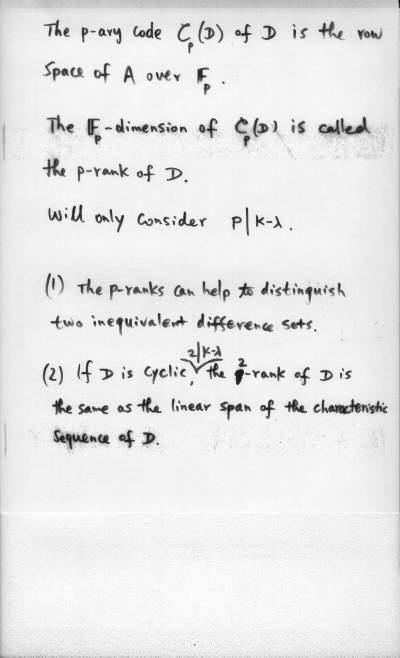 The p-ary code C_p(D) of D is the row
space of A over F_p.
The F_p-dimension of C_p(D) is called
the p-rank of D.
Will only consider p | k-λ.
(1) The p-ranks can help to distinguish
two inequivalent difference sets.
2|k-λ
(2) If D is cyclic, the 2-rank of D is
the same as the linear span of the characteristic
sequence of D.